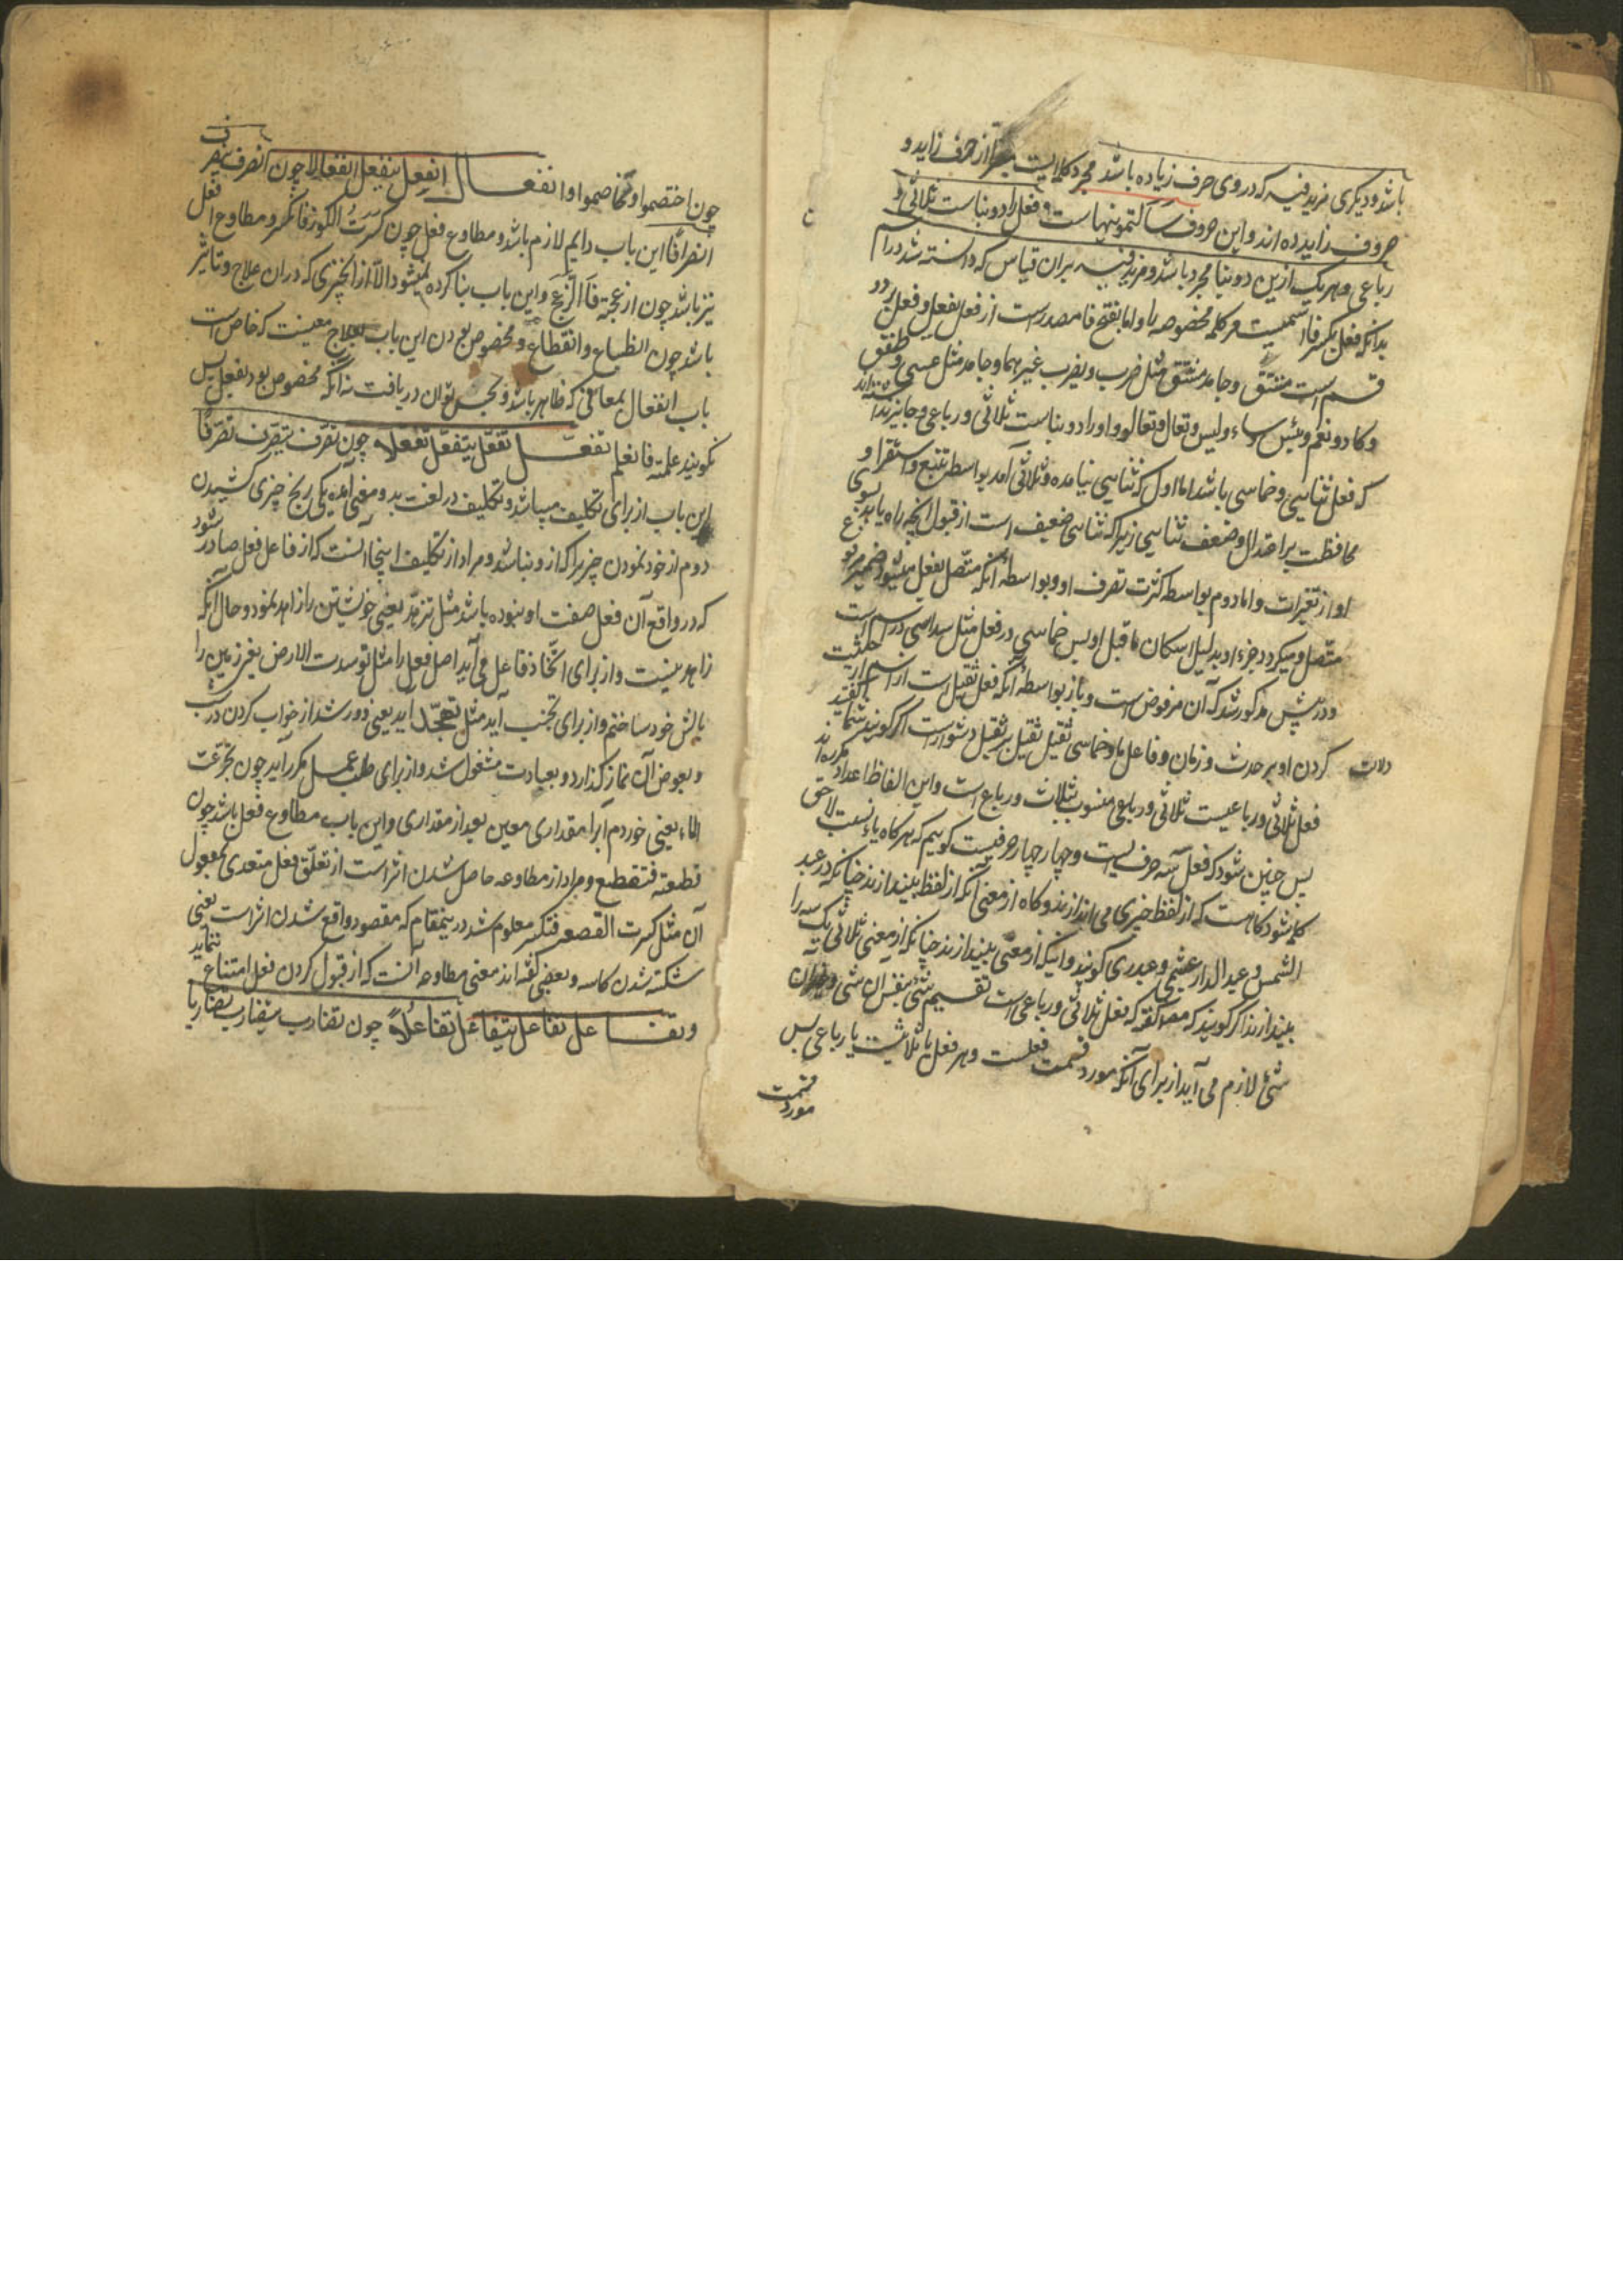 باشد و دیکری مزید فیه که در وی حرف زیاده باشد مجرد کلمه ایست از حرف زاید و
حروف زایده اند و این حروف سالتمونیها است و فعل را دو بناست ثلاثی و
رباعی و هر یک ازین دو بنا مجرد باشد و مزید فیه بران قیاس که دانسته شد در اسم
بدانکه فعل بکسر فا اسمیست مر کلمه مخصوصه را و اما بفتح فا مصدر است از فعل یفعل و فعل بر دو
قسم است مشتق و جامد مشتق مثل ضرب و یضرب غیر هما و جامد مثل عسی و طفق
و کاد و نعم و بئس و ساء و لیس و تعال و تعالوا و او را دو بناست ثلاثی و رباعی و جایز نداشته اند
که فعل ثنایی و خماسی باشد اما اول که ثنایی نیامده و ثلاثی آمد بواسطه تتبع و استقرا و
محافظت بر اعتدال و ضعف ثنایی زیرا که ثنایی ضعیف است از قبول انچه راه یابد بسوی
او از تغیرات و اما دوم بواسطه کثرت تصرف او و بواسطه آنکه متصل بفعل میشود ضمیر مرفوع
متصل و میکردد جزء او بدلیل اسکان ما قبل او پس خماسی در فعل مثل سداسی در اسم است
و در پیش مذکور شد که آن مرفوض است و باز بواسطه آنکه فعل ثقیل است از اسم از
دلالت کردن او بر حدث و زمان و فاعل با و خماسی ثقیل ثقیل بر ثقیل دشوار است اکر کویند شما کفتید
فعل ثلاثی و رباعیست ثلاثی و رباعی منسوب بثلاث و رباع است و این الفاظ اعداد مکرره اند
پس چنین شود که فعل سه سه حرفیست و چهار چهار حرفیست کوییم که هر کاه یاء نسبت لاحق
کلمه شود کاهست که از لفظ چیزی می اندازند و کاه از معنی آنکه از لفظ بیندازند چنانکه در عبد
الشمس و عبد الدار عبشمی و عبدری کویند و آنیکه از معنی بیندازند چنانکه از معنی ثلاثی یک سه را
بیندازند اکر کویند که مصنف کفته که فعل ثلاثی و رباعی است تقسیم شی بنفس ان شی و غیر ان
شی لازم می آید از برای آنکه مورد قسمت فعلست و هر فعل یا ثلاثیست یا رباعی پس
مورد قسمت
چون اختصموا و تخاصموا و انفعال انفعل ینفعل انفعالا چون انصرف ینصرف
انصرافا این باب دایم لازم باشد و مطاوع فعل چون کسرت الکوز فانکسر و مطاوع افعل
نیز باشد چون ازعجته فانزعج و این باب بنا کرده نمیشود الا از انچیزی که در ان علاج و تاثیر
باشد چون انطباع و انقطاع و مخصوص بودن این باب بعلاج معینیست که خاص است
باب انفعال بمعانی که ظاهر باشد و بحس توان دریافت نه آنکه مخصوص بود بفعل پس
نکویند علمته فانعلم تفعل تفعل یتفعل تفعلا چون تصرف یتصرف تصرفا
این باب از برای تکلیف میباشد و تکلیف در لغت بدو معنی آمده یکی رنج چیزی کشیدن
دوم از خود نمودن چیزیرا که از و نباشد و مراد از تکلیف اینجا آنست که از فاعل فعل صادر شود
که در واقع آن فعل صفت او نبوده باشد مثل تزهد یعنی خویشتن را زاهد نمود و حال آنکه
زاهد نیست و از برای اتخاذ فاعل می آید اصل فعل را مثل توسدت الارض یعنی زمین را
بالش خود ساختم و از برای تجنب آید مثل تهجد آید یعنی دور شد از خواب کردن در شب
و بعوض آن نماز کذارد و بعبادت مشغول شد و از برای طلب عمل مکرر آید چون تجرعت
الماء یعنی خوردم آبرا مقداری معین بعد از مقداری و این باب مطاوع فعل باشد چون
قطعته فتقطع و مراد از مطاوعه حاصل شدن اثر است از تعلق فعل متعدی بمفعول
آن مثل کسرت القصعه فتکسر معلوم شد درینمقام که مقصود واقع شدن اثر است یعنی
شکسته شدن کاسه و بعضی کفته اند معنی مطاوعه آنست که از قبول کردن فعل امتناع ننماید
و تفاعل تفاعل یتفاعل تفاعلا چون تضارب یتضارب تضاربا